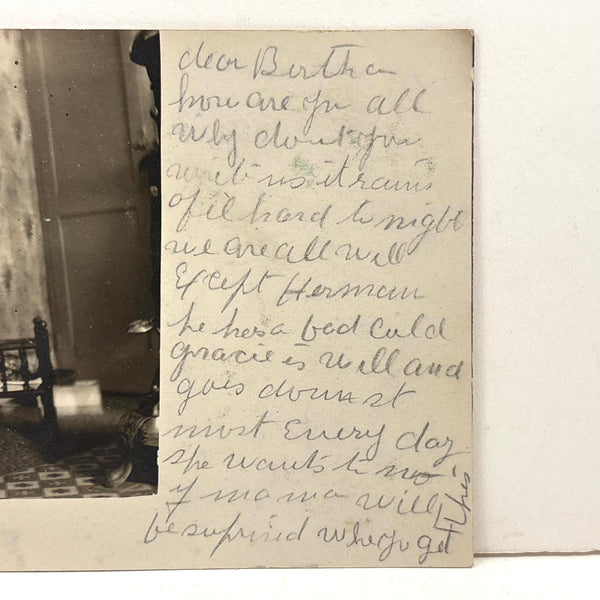 dear Bertha
how are you all
why dont you
write us it rains
offel hard to night
we are all well
Except Herman
he has a bad cold
gracie is well and
goes down st
most Every day
she wants to no
if mama will
be suprised when you get
this